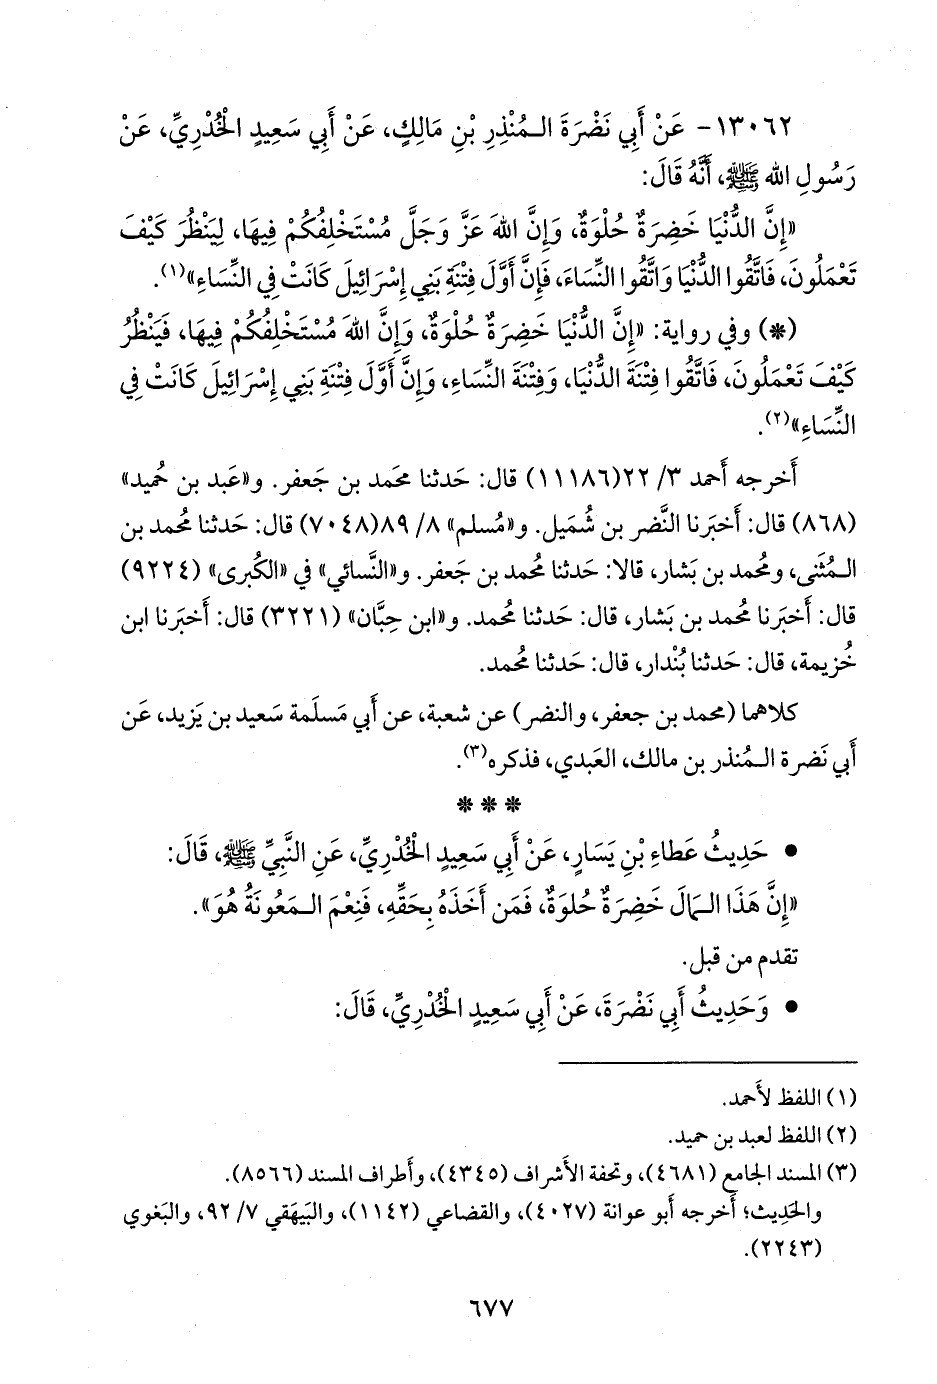 ١٣٠٦٢- عَنْ أَبِي نَضْرَةَ الـمُنْذِرِ بْنِ مَالِكٍ، عَنْ أَبِي سَعِيدٍ الْخُدْرِيِّ، عَنْ
رَسُولِ الله ﷺ، أَنَّهُ قَالَ:
«إِنَّ الدُّنْيَا خَضِرَةٌ حُلْوَةٌ، وَإِنَّ اللهَ عَزَّ وَجَلَّ مُسْتَخْلِفُكُمْ فِيهَا، لِيَنْظُرَ كَيْفَ
تَعْمَلُونَ، فَاتَّقُوا الدُّنْيَا وَاتَّقُوا النِّسَاءَ، فَإِنَّ أَوَّلَ فِتْنَةِ بَنِي إِسْرَائِيلَ كَانَتْ فِي النِّسَاءِ»(١).
(*) وفي رواية: «إِنَّ الدُّنْيَا خَضِرَةٌ حُلْوَةٌ، وَإِنَّ اللهَ مُسْتَخْلِفُكُمْ فِيهَا، فَيَنْظُرُ
كَيْفَ تَعْمَلُونَ، فَاتَّقُوا فِتْنَةَ الدُّنْيَا، وَفِتْنَةَ النِّسَاءِ، وَإِنَّ أَوَّلَ فِتْنَةِ بَنِي إِسْرَائِيلَ كَانَتْ فِي
النِّسَاءِ»(٢).
أَخرجه أَحمد ٣/ ٢٢(١١١٨٦) قال: حَدثنا محَمد بن جَعفر. و«عَبد بن حُميد»
(٨٦٨) قال: أَخبَرنا النَّضر بن شُمَيل. و«مُسلم» ٨/ ٨٩(٧٠٤٨) قال: حَدثنا مُحمد بن
الـمُثَنى، ومُحمد بن بَشار، قالا: حَدثنا مُحمد بن جَعفر. و«النَّسائي» في «الكُبرى» (٩٢٢٤)
قال: أَخبَرنا مُحمد بن بَشار، قال: حَدثنا مُحمد. و«ابن حِبَّان» (٣٢٢١) قال: أَخبَرنا ابن
خُزيمة، قال: حَدثنا بُنْدار، قال: حَدثنا مُحمد.
كلاهما (محمد بن جعفر، والنضر) عن شعبة، عن أَبي مَسلَمة سَعيد بن يَزيد، عَن
أَبي نَضرة الـمُنذر بن مالك، العَبدي، فذكره(٣).
* * *
• حَدِيثُ عَطَاءِ بْنِ يَسَارٍ، عَنْ أَبِي سَعِيدٍ الْخُدْرِيِّ، عَنِ النَّبِيِّ ﷺ، قَالَ:
«إِنَّ هَذَا الـمَالَ خَضِرَةٌ حُلوَةٌ، فَمَن أَخَذَهُ بِحَقِّهِ، فَنِعْمَ الـمَعُونَةُ هُوَ».
تقدم من قبل.
• وَحَدِيثُ أَبِي نَضْرَةَ، عَنْ أَبِي سَعِيدٍ الْخُدْرِيِّ، قَالَ:
(١) اللفظ لأَحمد.
(٢) اللفظ لعبد بن حميد.
(٣) المسند الجامع (٤٦٨١)، وتحفة الأَشراف (٤٣٤٥)، وأَطراف المسند (٨٥٦٦).
والحَدِيث؛ أَخرجه أَبو عوانة (٤٠٢٧)، والقضاعي (١١٤٢)، والبَيهَقي ٧/ ٩٢، والبَغوي
(٢٢٤٣).
٦٧٧